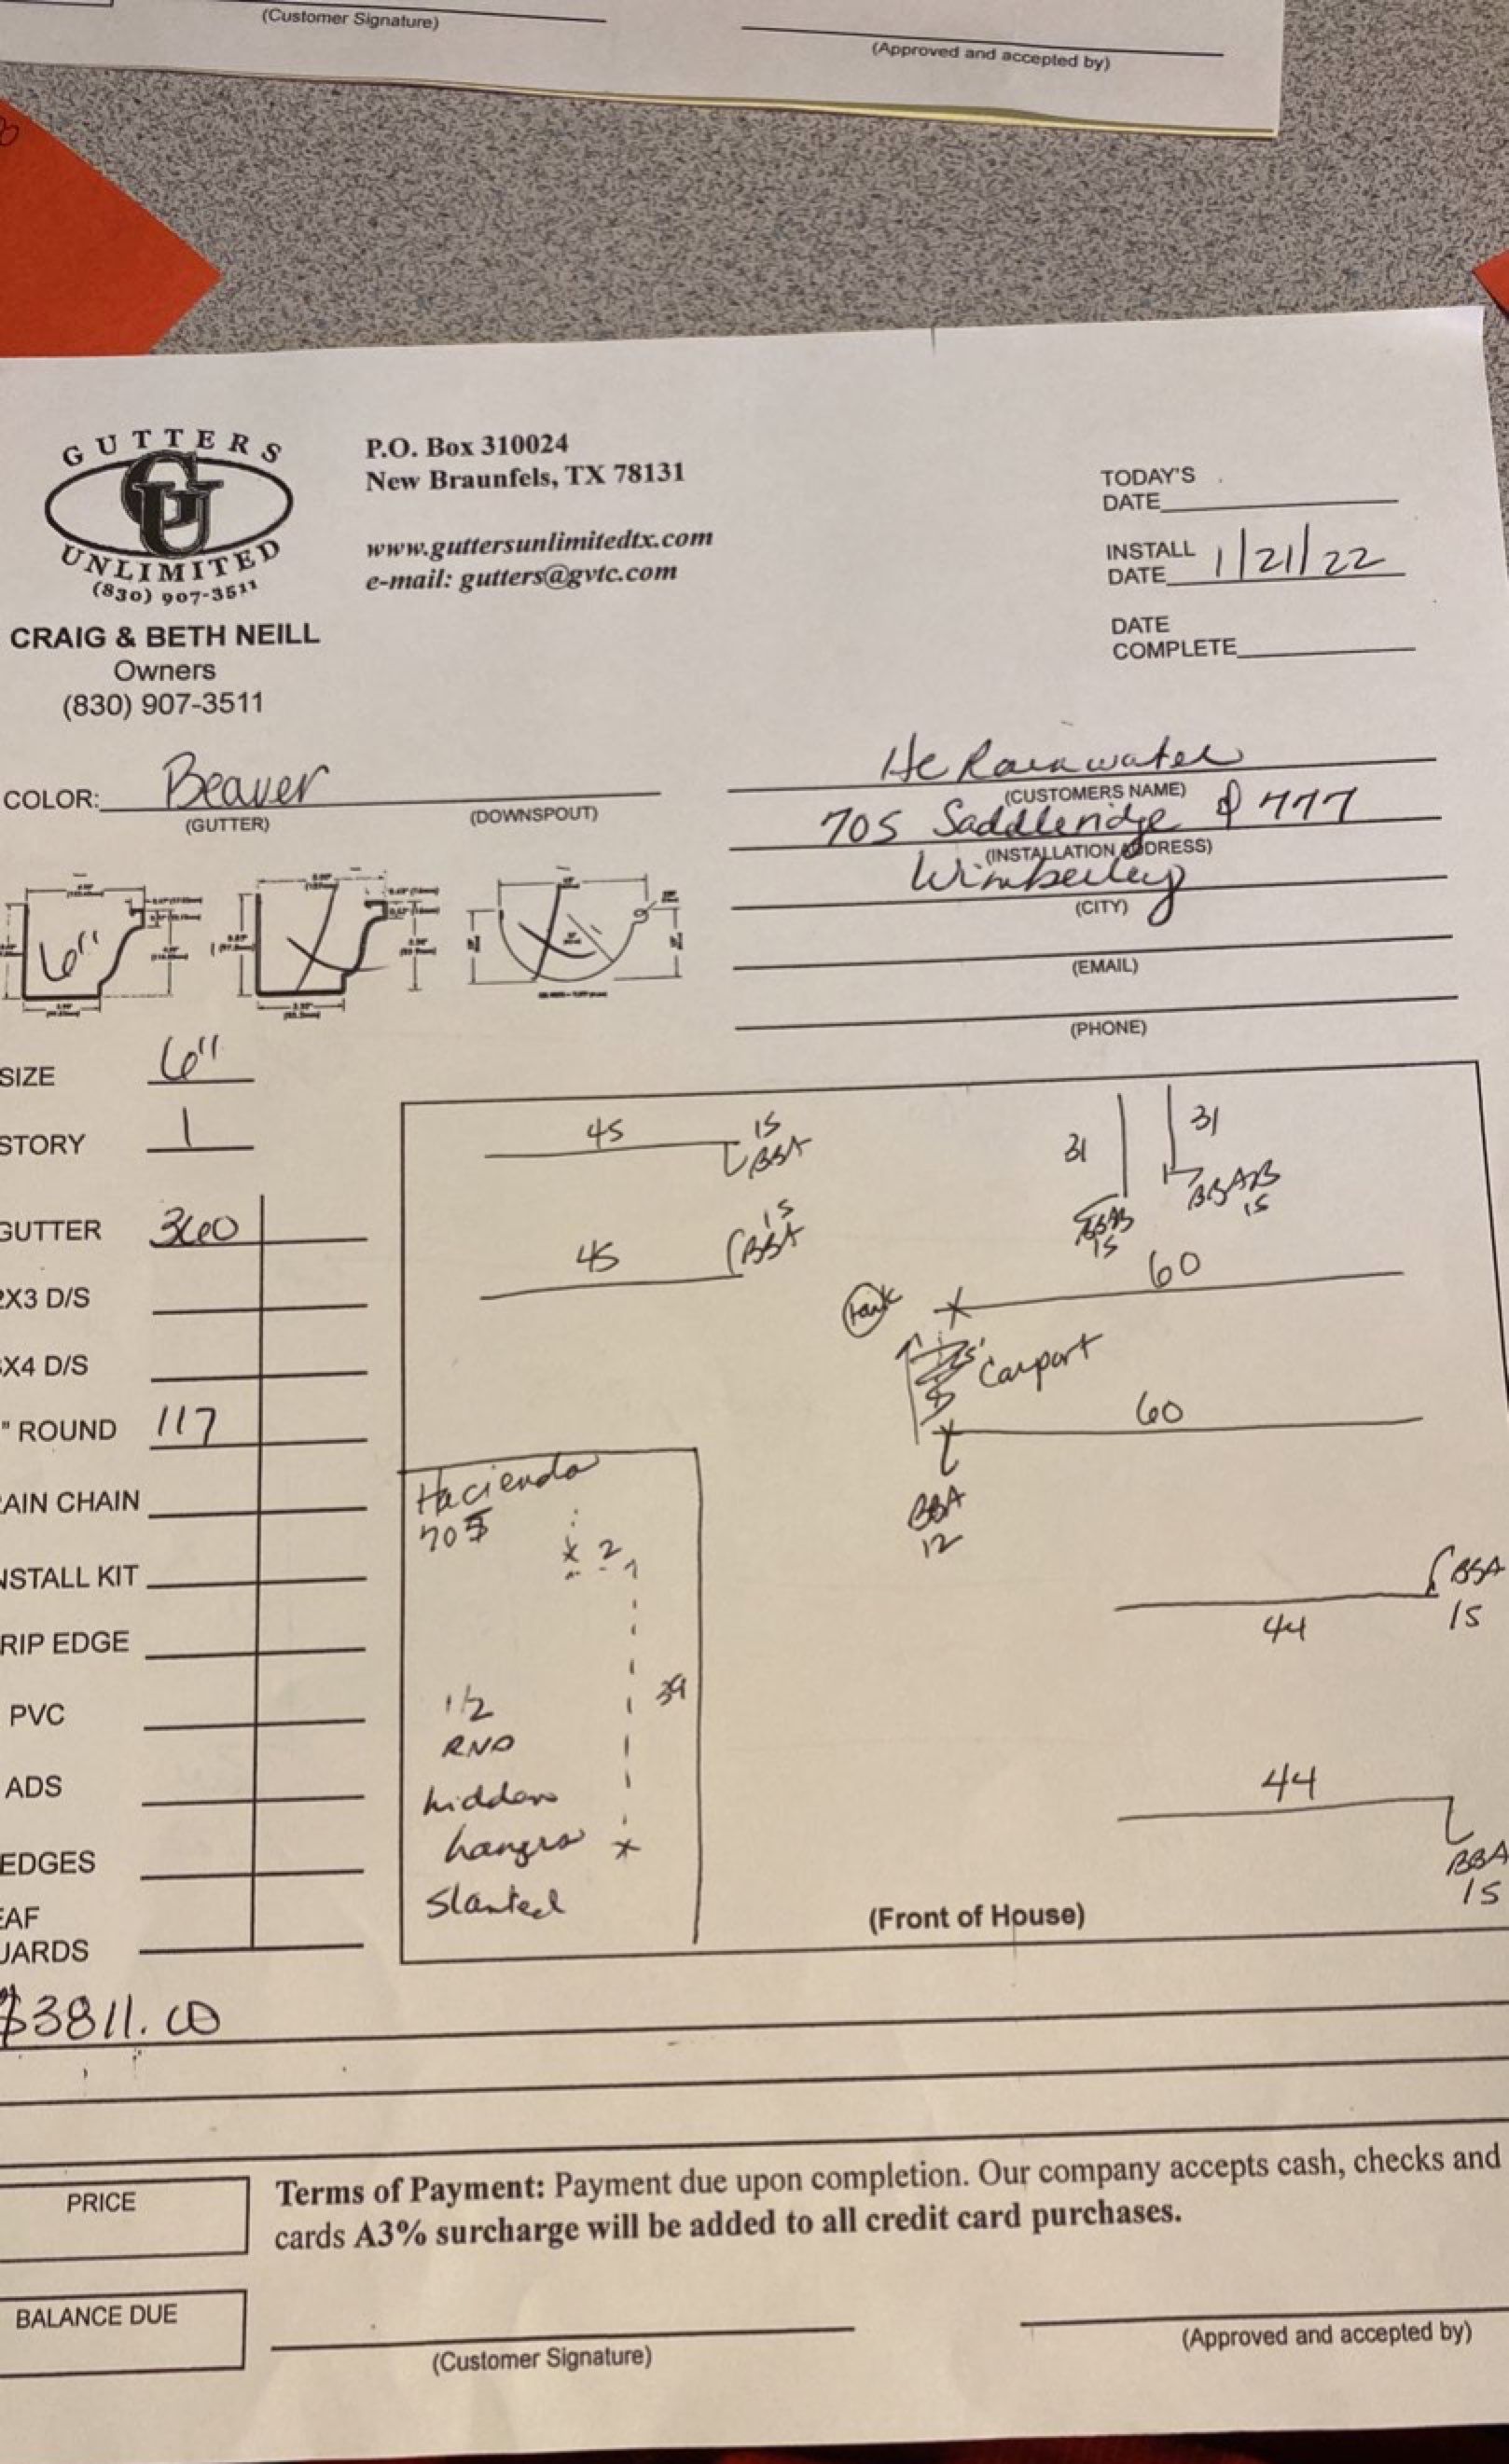 (Customer Signature)
(Approved and accepted by)
GUTTERS
GU
UNLIMITED
(830) 907-3511
CRAIG & BETH NEILL
Owners
(830) 907-3511
P.O. Box 310024
New Braunfels, TX 78131
www.guttersunlimitedtx.com
e-mail: gutters@gvtc.com
TODAY'S
DATE
INSTALL
DATE 1/21/22
DATE
COMPLETE
COLOR: Beaver
(GUTTER)
(DOWNSPOUT)
Hc Rainwater
(CUSTOMERS NAME)
705 Saddleridge & 777
(INSTALLATION ADDRESS)
Wimberley
(CITY)
(EMAIL)
(PHONE)
6"
SIZE 6"
STORY 1
GUTTER 360
2X3 D/S
3X4 D/S
" ROUND 117
AIN CHAIN
NSTALL KIT
RIP EDGE
PVC
ADS
EDGES
EAF
UARDS
45
15
BBA
45
15
BBA
31
31
BBAB
15
15
60
tank
Carport
60
BBA
12
Hacienda
705
2
39
1/2
RND
hidden
hangrs
Slanted
44
BBA
15
44
BBA
15
(Front of House)
$3811.00
PRICE
Terms of Payment: Payment due upon completion. Our company accepts cash, checks and
cards A3% surcharge will be added to all credit card purchases.
BALANCE DUE
(Customer Signature)
(Approved and accepted by)